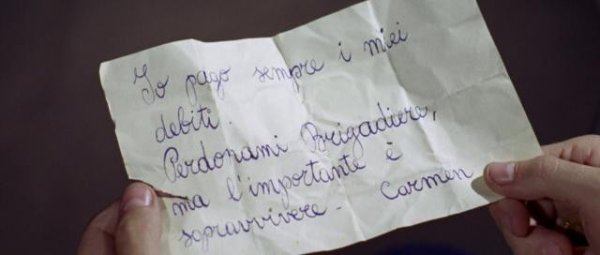 Io pago sempre i miei
debiti.
Perdonami Brigadiere,
ma l'importante è
sopravvivere - Carmen